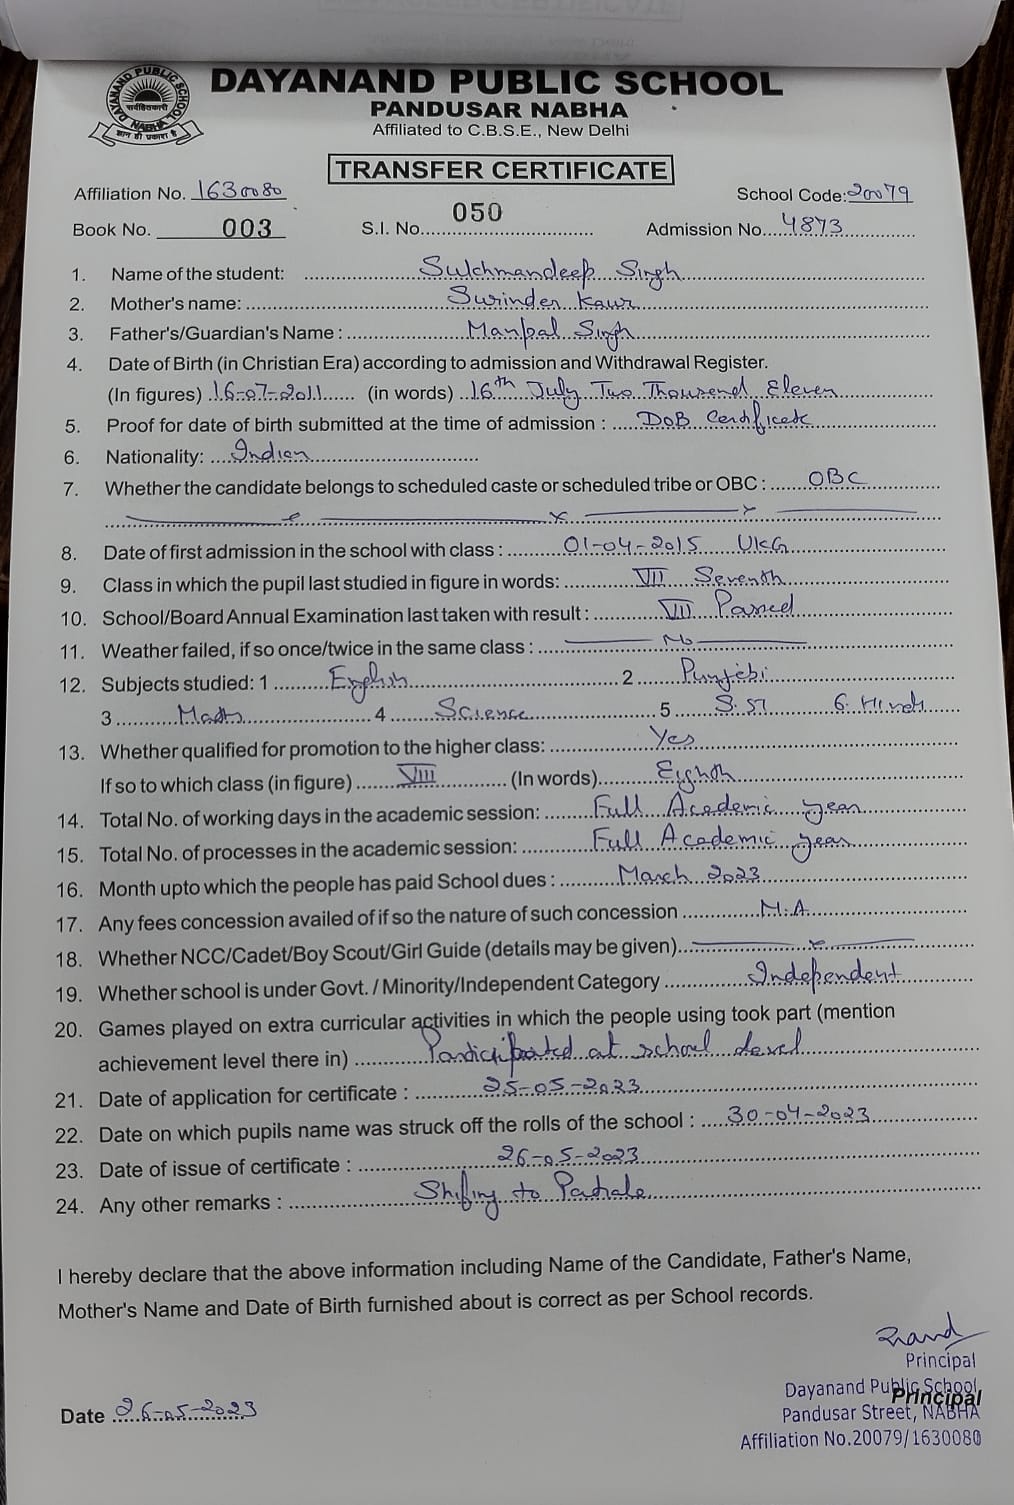 DAYANAND PUBLIC SCHOOL
PANDUSAR NABHA
Affiliated to C.B.S.E., New Delhi
DAYANAND PUBLIC SCHOOL
सर्वहितकारी
NABHA
ज्ञान ही प्रकाश है
TRANSFER CERTIFICATE
Affiliation No. 1630080 School Code: 20079
Book No. 003 S.I. No. 050 Admission No. 4873
1. Name of the student: Sukhmandeep Singh
2. Mother's name: Surinder Kaur
3. Father's/Guardian's Name : Manpal Singh
4. Date of Birth (in Christian Era) according to admission and Withdrawal Register.
(In figures) 16-07-2011 (in words) 16th July Two Thousend Eleven
5. Proof for date of birth submitted at the time of admission : DOB Certificate
6. Nationality: Indian
7. Whether the candidate belongs to scheduled caste or scheduled tribe or OBC : OBC
8. Date of first admission in the school with class : 01-04-2015 UKG
9. Class in which the pupil last studied in figure in words: VII Seventh
10. School/Board Annual Examination last taken with result : VII Passed
11. Weather failed, if so once/twice in the same class : No
12. Subjects studied: 1 English 2 Punjabi
3 Maths 4 Science 5 S.St 6. Hindi
13. Whether qualified for promotion to the higher class: Yes
If so to which class (in figure) VIII (In words) Eighth
14. Total No. of working days in the academic session: Full Academic year
15. Total No. of processes in the academic session: Full Academic year
16. Month upto which the people has paid School dues : March 2023
17. Any fees concession availed of if so the nature of such concession N.A.
18. Whether NCC/Cadet/Boy Scout/Girl Guide (details may be given)
19. Whether school is under Govt. / Minority/Independent Category Independent
20. Games played on extra curricular activities in which the people using took part (mention
achievement level there in) Participated at school level
21. Date of application for certificate : 25-05-2023
22. Date on which pupils name was struck off the rolls of the school : 30-04-2023
23. Date of issue of certificate : 26-05-2023
24. Any other remarks : Shifing to Patiala
I hereby declare that the above information including Name of the Candidate, Father's Name,
Mother's Name and Date of Birth furnished about is correct as per School records.
Principal
Dayanand Public School
Principal
Pandusar Street, NABHA
Affiliation No.20079/1630080
Date 26-05-2023